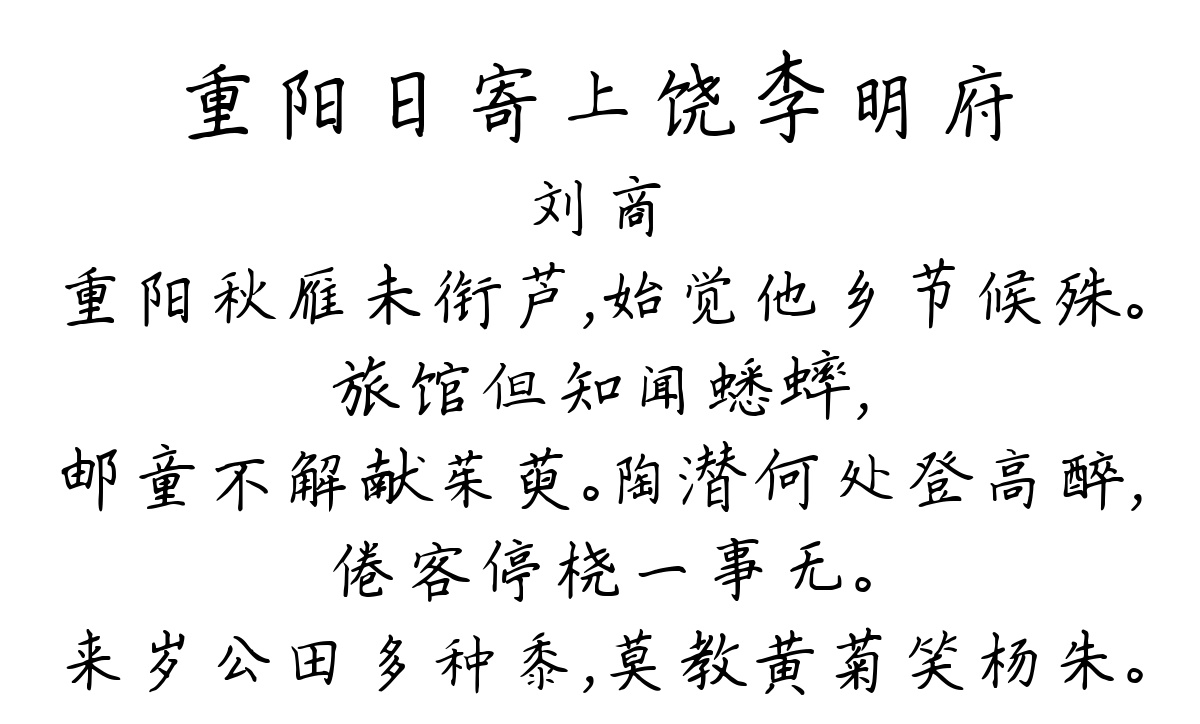 重阳日寄上饶李明府
刘商
重阳秋雁未衔芦,始觉他乡节候殊。
旅馆但知闻蟋蟀,
邮童不解献茱萸。陶潜何处登高醉,
倦客停桡一事无。
来岁公田多种黍,莫教黄菊笑杨朱。